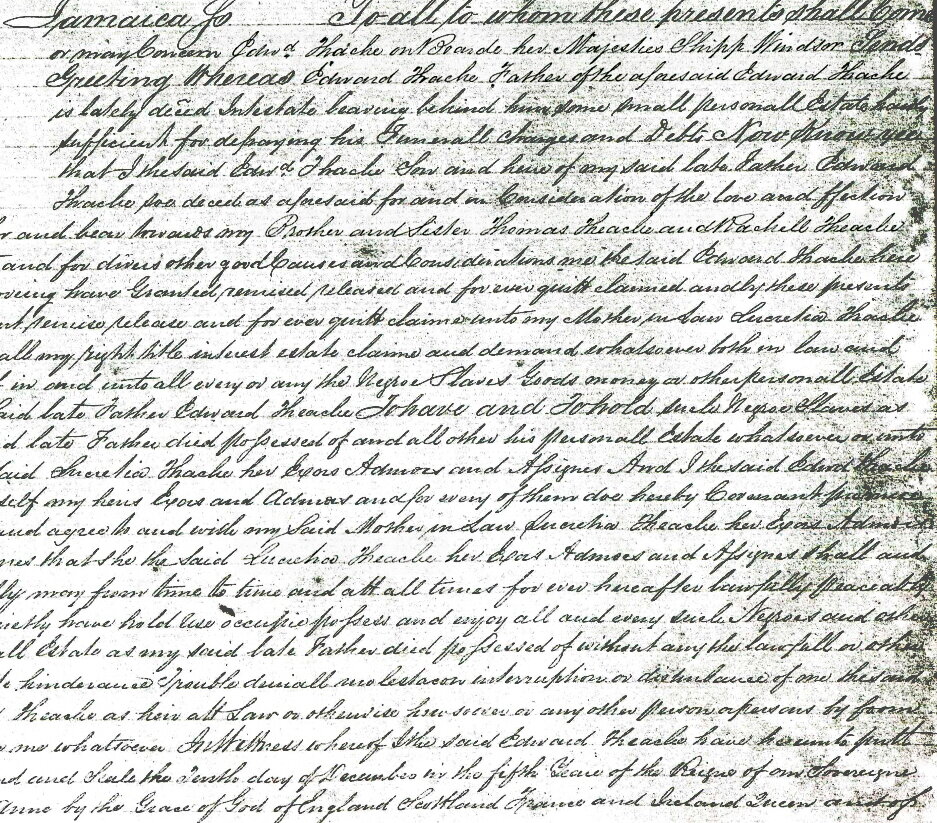 Jamaica Ss To all to whom these presents shall Come
or may Concern Edwd Thache on Boarde her Majesties Shipp Windsor Sends
Greeting Whereas Edward Thache Father of the aforesaid Edward Thache
is lately deced Intestate leaving behind him some small personall Estate hardly
sufficient for defraying his Funerall Charges and Debts Now Know yee
that I the said Edwd Thache Son and heire of my said late Father Edward
Thache soe deced as aforesaid for and in Consideration of the love and Affection
and bear towards my Brother and Sister Thomas Theache and Rachell Theache
and for divers other good Causes and Considerations me the said Edward Thache here
oving have Granted remised released and for ever quitt claimed and by these presents
nt, remise, release and for ever quitt claime unto my Mother in Law Lucretia Theache
all my right title interest estate claime and demand whatsoever both in law and
in and unto all every or any the Negroe Slaves Goods money or other personall Estate
said late Father Edward Theache To have and To hold such Negroe Slaves as
d late Father died possessed of and all other his personall Estate whatsoever or unto
said Lucretia Thache her Exors Admors and Assignes And I the said Edwd Thache
self my heirs Exors and Admors and for every of them doe hereby Covenant promise
and agree to and with my Said Mother in Law Lucretia Theache her Exors Admors
nes that She the said Lucretia Theache her Exors Admors and Assignes shall and
lly may from time to time and att all times for ever hereafter lawfully peaceably
uietly have hold Use occupie possess and enjoy all and every such Negroes and other
all Estate as my said late Father died possessed of without any the lawfull or other
hinderance Trouble deniall molestacon interruption or disturbance of me the said
Theache as heir att Law or otherwise howsoever or any other person or persons by from
me whatsoever In Wittness whereof I the said Edward Theache have hereunto putt
nd and Seale the Tenth day of December in the fifth Yeare of the Reigne of our Sovereigne
Anne by the Grace of God of England Scottland France and Ireland Queen and of